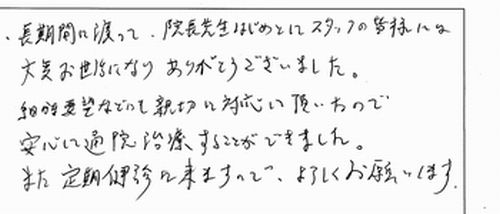 ・長期間に渡って、院長先生はじめとしスタッフの皆様には
大変お世話になりありがとうございました。
要望などにも親切に対応して頂いたので
安心して通院治療することができました。
また定期健診に来ますので、よろしくお願いします。